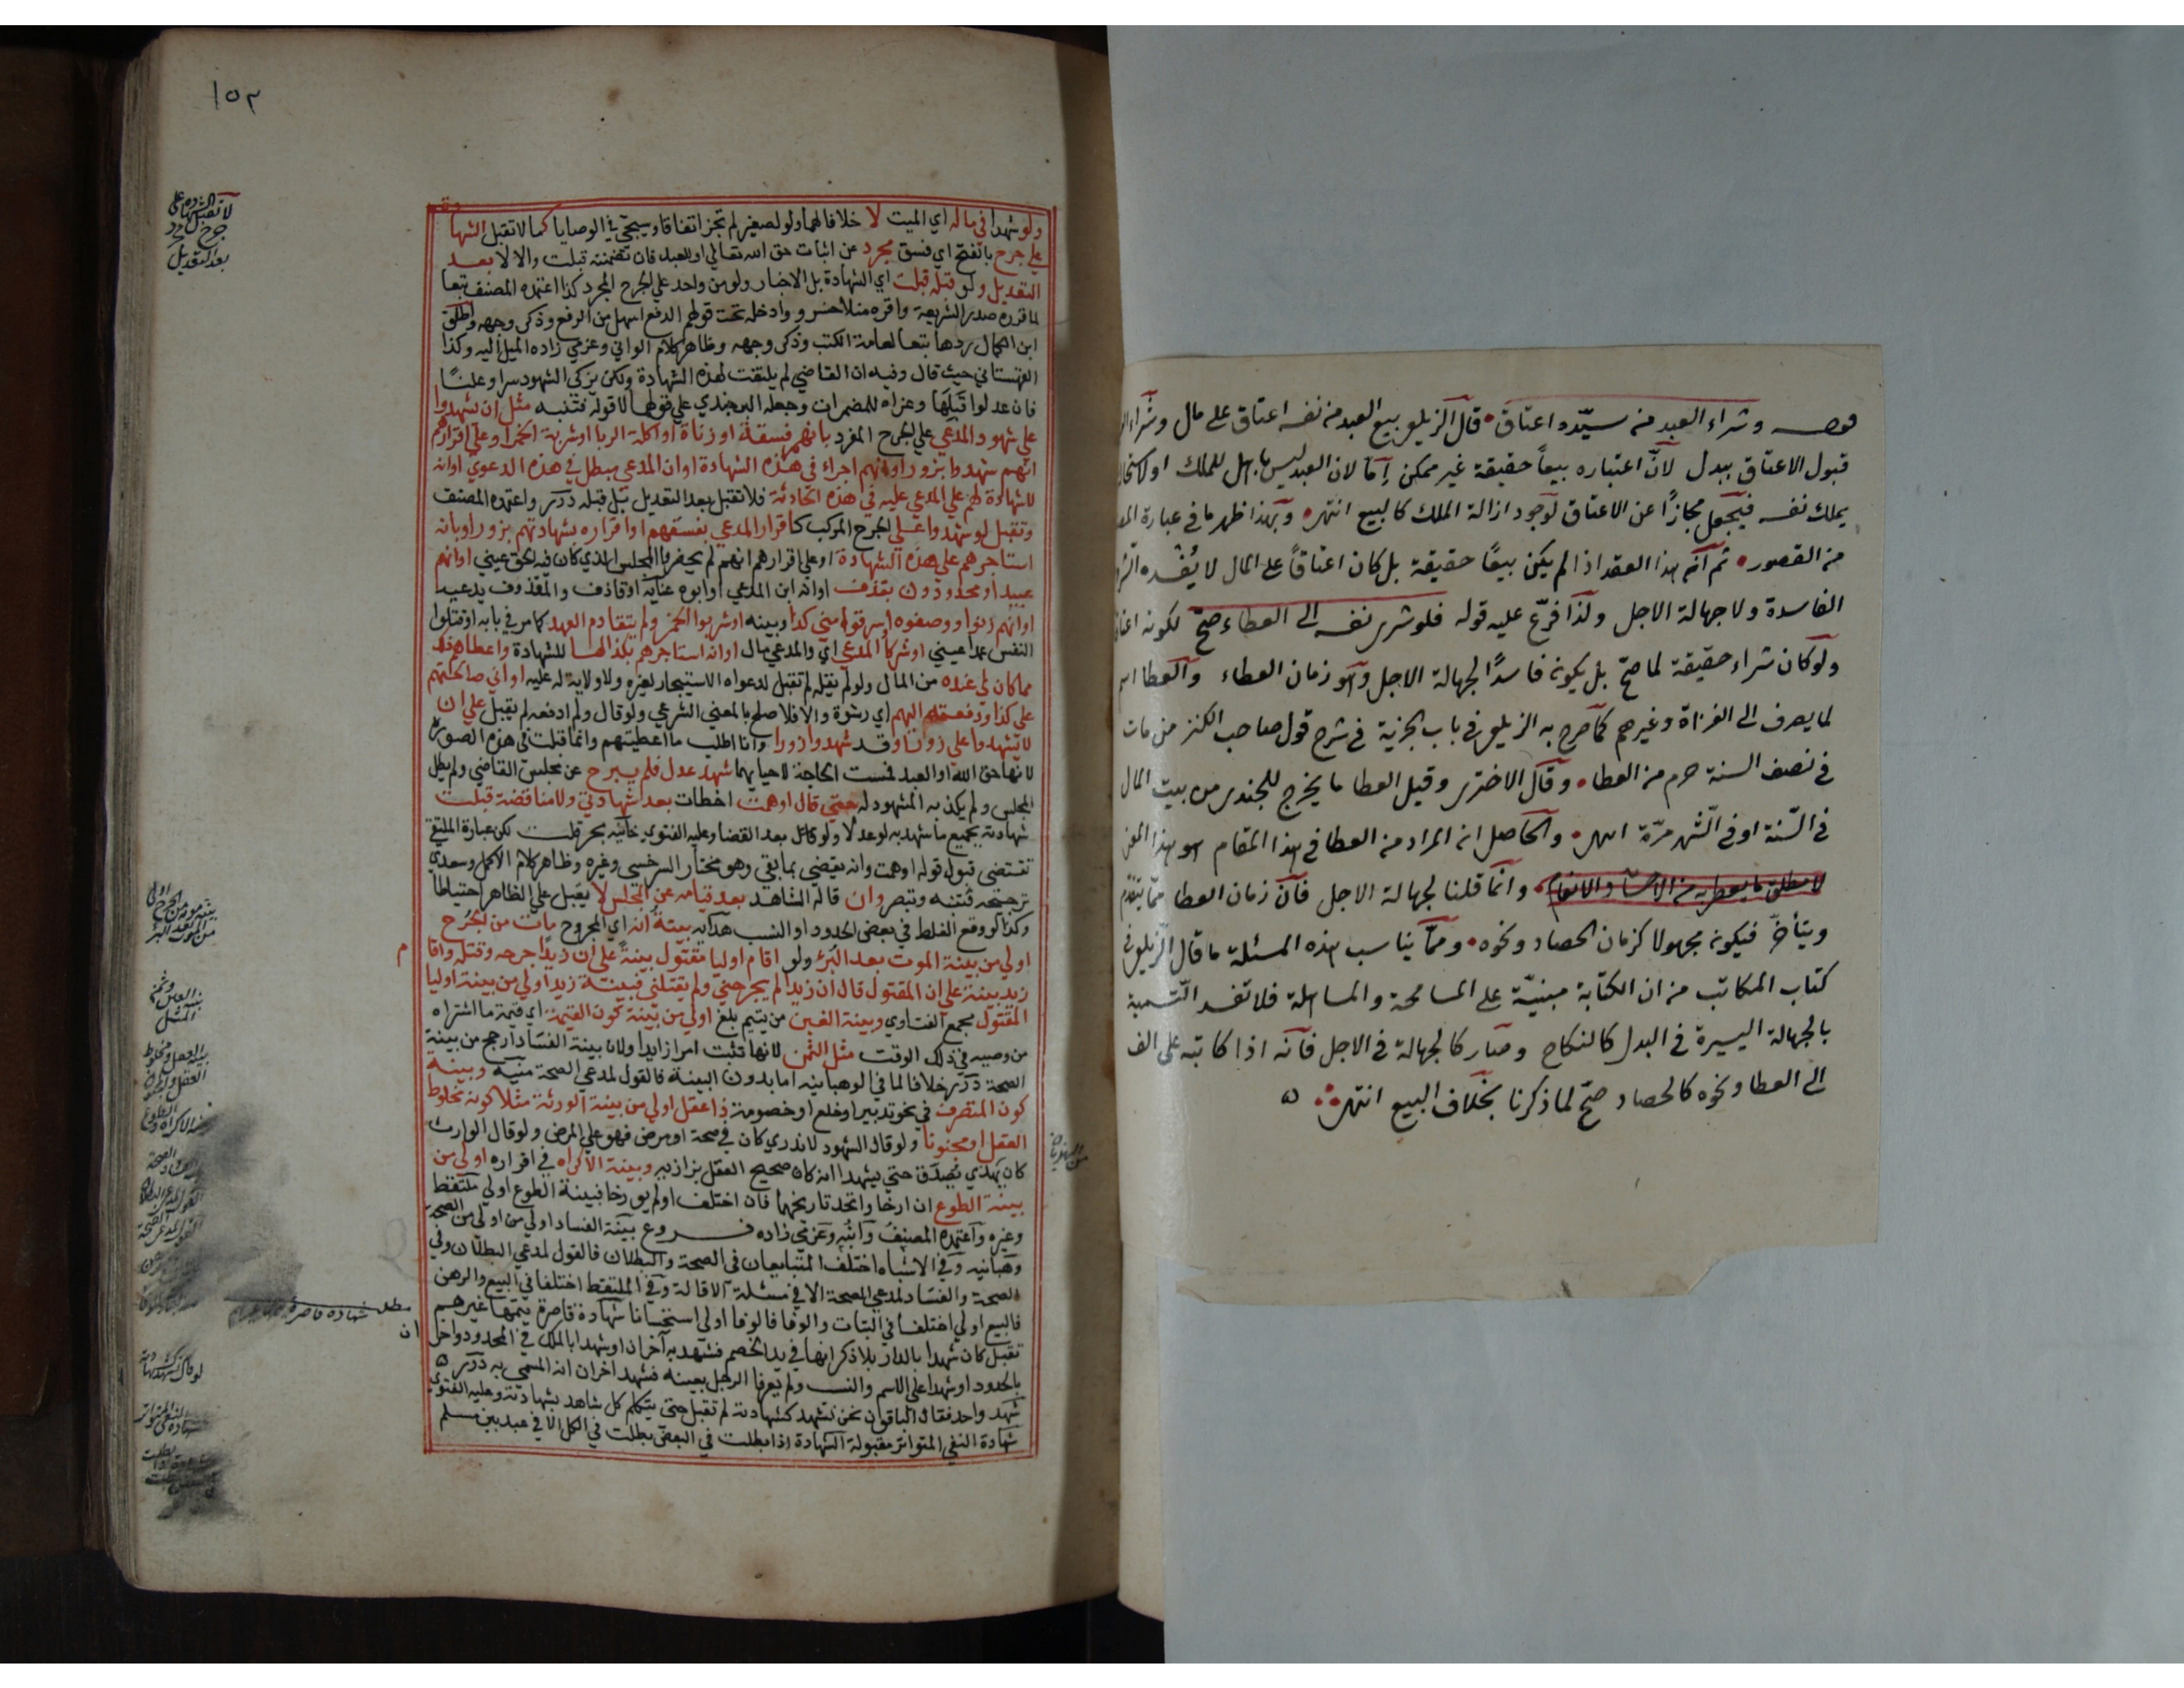 ١٥٢
لا تقبل الشهادة على
جرح مجرد
بعد التعديل
ولو شهدا في ماله اي الميت لا خلافا لهما ولو لصغير لم تجز اتفاقا وسيجئ في الوصايا كما لا تقبل الشهادة
على جرح بالفتح اي فسق مجرد عن اثبات حق الله تعالي او للعبد فان تضمنته قبلت والا لا بعد
التعديل ولو قبله قبلت اي الشهادة بل الاخبار ولو من واحد علي الجرح المجرد كذا اعتمده المصنف تبعا
لما قرره صدر الشريعة واقره منلا خسرو وادخله تحت قولهم الدفع اسهل من الرفع وذكر وجهه واطلق
ابن الكمال ردها تبعا لعامة الكتب وذكر وجهه وظاهر كلام الواني وعزمي زاده الميل اليه وكذا
القهستاني حيث قال وفيه ان القاضي لم يلتفت لهذه الشهادة ولكن يزكي الشهود سرا وعلنًا
فان عدلوا قبلها وعزاه للمضمرات وجعله البرجندي علي قولهما لا قوله فتنبه مثل ان يشهدوا
علي شهود المدعي علي الجرح المفرد بانهم فسقة او زناة او اكلة الربا او شربة الخمر او علي اقرارهم
انهم شهدوا بزور او انهم اجراء في هذه الشهادة او ان المدعي مبطل في هذه الدعوي او انه
لا شهادة لهم علي المدعي عليه في هذه الحادثة فلا تقبل بعد التعديل بل قبله درر واعتمده المصنف
وتقبل لو شهدوا علي الجرح المركب كاقرار المدعي بفسقهم او اقراره بشهادتهم بزور او بانه
استاجرهم علي هذه الشهادة او علي اقرارهم انهم لم يحضروا المجلس الذي كان فيه الحق عيني او انهم
عبيد او محدودون بقذف او انه ابن المدعي او ابوه عناية او قاذف والمقذوف يدعيه
او انهم زنوا ووصفوه او سرقوا مني كذا وبينه او شربوا الخمر ولم يتقادم العهد كما مر في بابه او قتلوا
النفس عمدا عيني او شركا المدعي اي والمدعي مال او انه استاجرهم بكذا لها للشهادة واعطاهم ذلك
مما كان لي عنده من المال ولو لم يقله لم تقبل لدعواه الاستيجار لغيره ولا ولاية له عليه او اني صالحتهم
علي كذا ودفعته اليهم اي رشوة والا فلا صلح بالمعني الشرعي ولو قال ولم ادفعه لم يقبل علي ان
لا يشهدوا علي زورا وقد شهدوا زورا وانا اطلب ما اعطيتهم وانما قبلت في هذه الصورة
لانها حق الله او العبد فمست الحاجة لاحيايهما شهد عدل فلم يبرح عن مجلس القاضي ولم يطل
المجلس ولم يكذبه المشهود له حتي قال اوهمت اخطات بعد شهادتي ولا مناقضة قبلت
شهادته بجميع ما شهد به لو عدلا ولو كان بعد القضا وعليه الفتوي خانيه بحر قلت لكن عبارة الملتقي
تقتضي قبول قوله اوهمت وانه يقضي بما بقي وهو مختار السرخسي وغيره وظاهر كلام الاكمل وسعدي
ترجيحه فتنبه وتبصر وان قاله الشاهد بعد قيامه عن المجلس لا يقبل علي الظاهر احتياطا
وكذا لو وقع الغلط في بعض الحدود او النسب هدايه بينة انه اي المجروح مات من الجرح
اولي من بينة الموت بعد البرء ولو اقام اوليا مقتول بينة علي ان زيدا جرحه وقتله واقام
زيد بينة علي ان المقتول قال ان زيدا لم يجرحني ولم يقتلني فبينة زيد اولي من بينة اوليا
المقتول مجمع الفتاوي وبينة الغبن من يتيم بلغ اولي من بينة كون القيمة اي قيمة ما اشتراه
من وصيه في ذلك الوقت مثل الثمن لانها تثبت امرا زايدا ولان بينة الفساد ارجح من بينة
الصحة درر خلافا لما في الوهبانيه اما بدون البينة فالقول لمدعي الصحة منيه وبينة
كون المتصرف في نحو تدبير او خلع او خصومة ذا عقل اولي من بينة الورثة مثلا كونه مخلوط
العقل او مجنونا ولو قال الشهود لا ندري كان في صحة او مرض فهو علي المرض ولو قال الوارث
كان يهذي يصدق حتي يشهدا انه كان صحيح العقل بزازيه وبينة الاكراه في اقراره اولي من
بينة الطوع ان ارخا واتحد تاريخهما فان اختلف او لم يورخا فبينة الطوع اولي ملتقط
وغيره واعتمده المصنف وابنه وعزمي زاده فروع بينة الفساد اولي من اولي من الصحة
وهبانيه وفي الاشباه اختلف المتبايعان في الصحة والبطلان فالقول لمدعي البطلان وفي
الصحة والفساد لمدعي الصحة الا في مسئلة الاقالة وفي الملتقط اختلفا في البيع والرهن
فالبيع اولي اختلفا في البتات والوفا فالوفا اولي استحسانا شهادة قاصرة يتمها غيرهم
تقبل كان شهدا بالدار بلا ذكر انها في يد الخصم فشهد به آخران او شهدا بالملك في المحدود واخران
بالحدود او شهدا علي الاسم والنسب ولم يعرفا الرجل بعينه فشهد اخران انه المسمي به درر
شهد واحد فقال الباقون نحن نشهد كشهادته لم تقبل حتي يتكلم كل شاهد بشهادته وعليه الفتوي
شهادة النفي المتواتر مقبولة الشهادة اذا بطلت في البعض بطلت في الكل الا في عبد بين مسلم
مطلب شهادة قاصرة
قوله وشراء العبد من سيّده اعتاق قال الزيلعي بيع العبد من نفسه اعتاق على مال وشراء
قبول الاعتاق ببدل لانّ اعتباره بيعاً حقيقة غير ممكن إمّا لان العبد ليس باهل للملك او لاستحالة
يملك نفسه فيجعل مجازاً عن الاعتاق لوجود ازالة الملك كالبيع انتهى وبهذا ظهر ما في عبارة
من القصور ثم انّ هذا العقد اذا لم يكن بيعًا حقيقة بل كان اعتاقاً على المال لا يُفْسده
الفاسدة ولا جهالة الاجل ولذا فرّع عليه قوله فلو شرى نفسه الى العطاء صحّ لكونه
ولو كان شراء حقيقة لما صحّ بل يكون فاسدًا لجهالة الاجل وهو زمان العطاء والعطا اسم
لما يصرف الى الغزاة وغيرهم كما صرح به الزيلعي في باب الجزية في شرح قول صاحب الكنز من مات
في نصف السنة حرم من العطا وقال الاختري وقيل العطا ما يخرج للجندي من بيت المال
في السّنة او في الشّهر مرّة انتهى والحاصل ان المراد من العطا في هذا المقام هو بهذا المعنى
لا مطلق ما يعطى به من الاحسان والانعام وانّما قلنا لجهالة الاجل فانّ زمان العطا ممّا يتقدم
ويتأخّر فيكون مجهولا كزمان الحصاد ونحوه وممّا يناسب هذه المسئلة ما قال الزيلعي في
كتاب المكاتب من ان الكتابة مبنيّة على المسامحة والمساهلة فلا تفسد التّسمية
بالجهالة اليسيرة في البدل كالنكاح وصار كالجهالة في الاجل فانّه اذا كاتبه على الف
الى العطا ونحوه كالحصاد صحّ لما ذكرنا بخلاف البيع انتهى